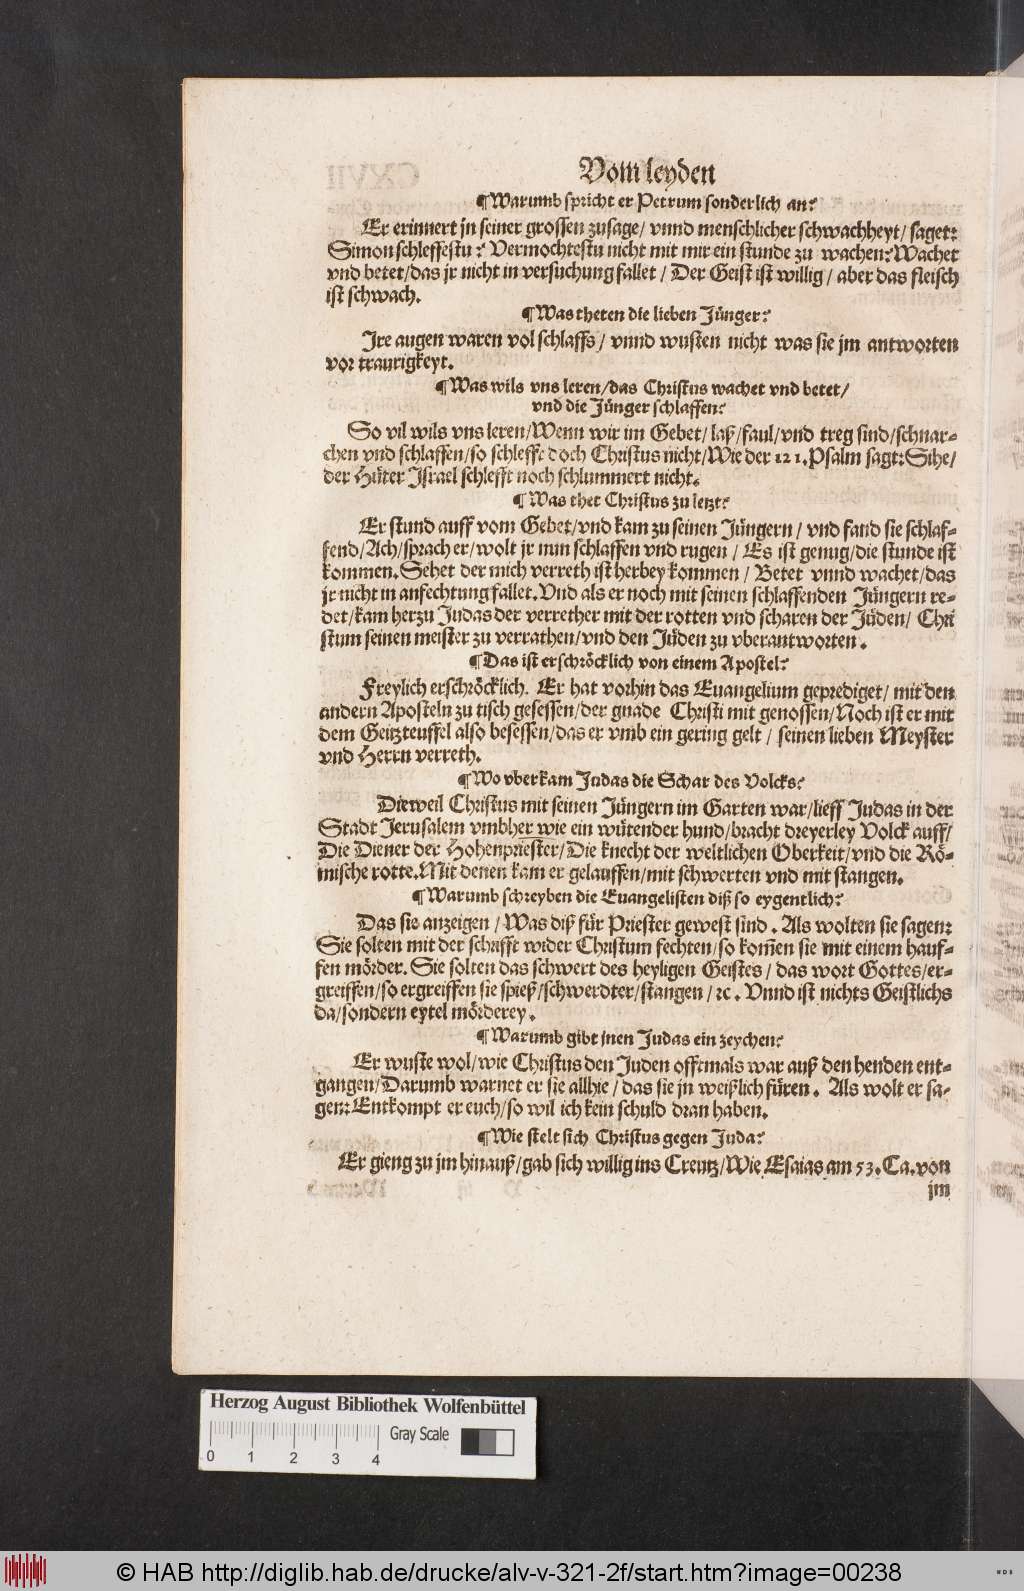 Vom leyden
¶Warumb spricht er Petrum sonderlich an?
Er erinnert jn seiner grossen zusage/ vnnd menschlicher schwachheyt/ saget:
Simon schleffestu? Vermochtestu nicht mit mir ein stunde zu wachen? Wachet
vnd betet/das jr nicht in versuchung fallet / Der Geist ist willig / aber das fleisch
ist schwach.
¶Was theten die lieben Jünger?
Jre augen waren vol schlaffs / vnnd wusten nicht was sie jm antworten
vor traurigkeyt.
¶Was wils vns leren/das Christus wachet vnd betet/
vnd die Jünger schlaffen?
So vil wils vns leren/Wenn wir im Gebet/ laß/faul/vnd treg sind/schnar-
chen vnd schlaffen/so schlefft doch Christus nicht/Wie der 121. Psalm sagt: Sihe/
der Hüter Israel schlefft noch schlummert nicht.
¶Was thet Christus zu letzt?
Er stund auff vom Gebet/vnd kam zu seinen Jüngern / vnd fand sie schlaf-
fend/Ach/sprach er/wolt jr nun schlaffen vnd rugen / Es ist genug/die stunde ist
kommen. Sehet der mich verreth ist herbey kommen / Betet vnnd wachet/das
jr nicht in anfechtung fallet. Vnd als er noch mit seinen schlaffenden Jüngern re-
det/kam herzu Judas der verrether mit der rotten vnd scharen der Jüden/ Chri
stum seinen meister zu verrathen/vnd den Jüden zu vberantworten.
¶Das ist erschröcklich von einem Apostel?
Freylich erschröcklich. Er hat vorhin das Euangelium geprediget/ mit den
andern Aposteln zu tisch gesessen/der gnade Christi mit genossen/Noch ist er mit
dem Geitzteuffel also besessen/das er vmb ein gering gelt / seinen lieben Meyster
vnd Herrn verreth.
¶Wo vberkam Judas die Schar des Volcks?
Dieweil Christus mit seinen Jüngern im Garten war/lieff Judas in der
Stadt Jerusalem vmbher wie ein wütender hund/bracht dreyerley Volck auff/
Die Diener der Hohenpriester/Die knecht der weltlichen Oberkeit/vnd die Rö-
mische rotte. Mit denen kam er gelauffen/mit schwerten vnd mit stangen.
¶Warumb schreyben die Euangelisten diß so eygentlich?
Das sie anzeigen / Was diß für Priester gewest sind. Als wolten sie sagen:
Sie solten mit der schrifft wider Christum fechten/so kom̄en sie mit einem hauf-
fen mörder. Sie solten das schwert des heyligen Geistes / das wort Gottes/er-
greiffen/so ergreiffen sie spieß/schwerdter/stangen / ꝛc. Vnnd ist nichts Geistlichs
da/sondern eytel mörderey.
¶Warumb gibt jnen Judas ein zeychen?
Er wuste wol/wie Christus den Juden offtmals war auß den henden ent-
gangen/Darumb warnet er sie allhie / das sie jn weißlich füren. Als wolt er sa-
gen: Entkompt er euch/so wil ich kein schuld dran haben.
¶Wie stelt sich Christus gegen Juda?
Er gieng zu jm hinauß/gab sich willig ins Creutz/Wie Esaias am 53. Ca. von
jm
Herzog August Bibliothek Wolfenbüttel
Gray Scale
0 1 2 3 4
© HAB http://diglib.hab.de/drucke/alv-v-321-2f/start.htm?image=00238